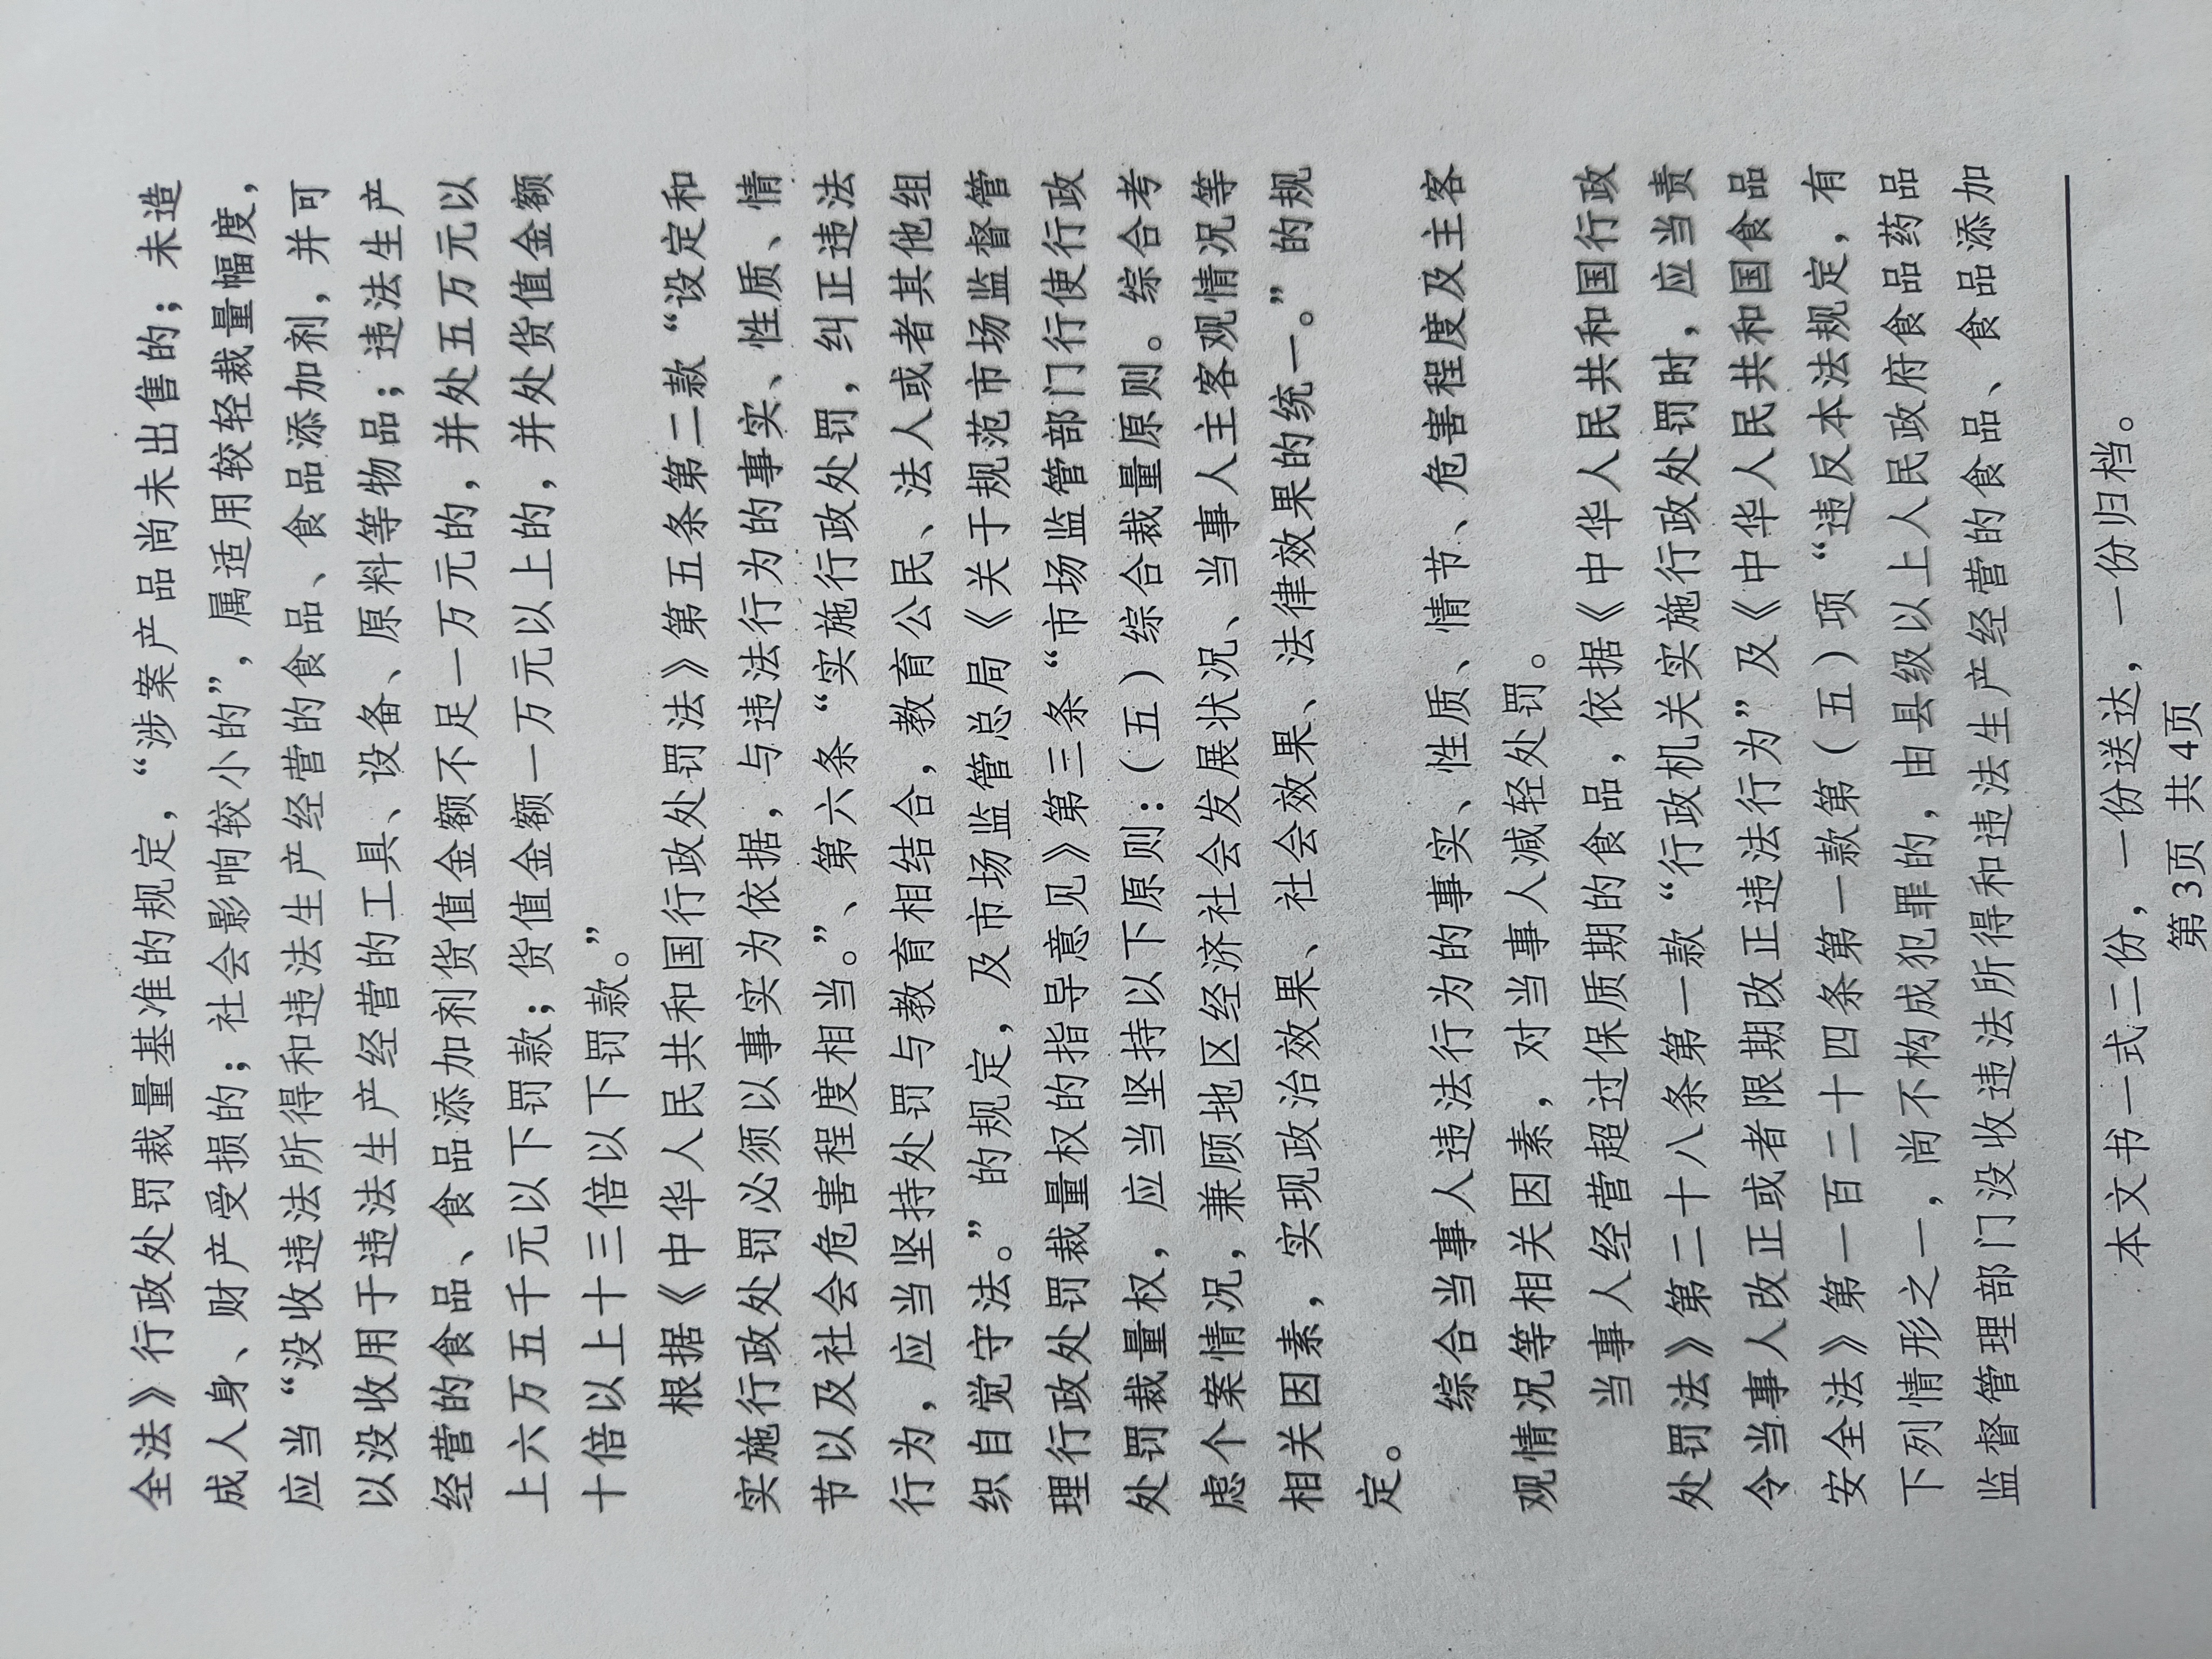 全法》行政处罚裁量基准的规定，“涉案产品尚未出售的；未造
成人身、财产受损的；社会影响较小的”，属适用较轻裁量幅度，
应当“没收违法所得和违法生产经营的食品、食品添加剂，并可
以没收用于违法生产经营的工具、设备、原料等物品；违法生产
经营的食品、食品添加剂货值金额不足一万元的，并处五万元以
上六万五千元以下罚款；货值金额一万元以上的，并处货值金额
十倍以上十三倍以下罚款。”
根据《中华人民共和国行政处罚法》第五条第二款“设定和
实施行政处罚必须以事实为依据，与违法行为的事实、性质、情
节以及社会危害程度相当。”、第六条“实施行政处罚，纠正违法
行为，应当坚持处罚与教育相结合，教育公民、法人或者其他组
织自觉守法。”的规定，及市场监管总局《关于规范市场监督管
理行政处罚裁量权的指导意见》第三条“市场监管部门行使行政
处罚裁量权，应当坚持以下原则：（五）综合裁量原则。综合考
虑个案情况，兼顾地区经济社会发展状况、当事人主客观情况等
相关因素，实现政治效果、社会效果、法律效果的统一。”的规
定。
综合当事人违法行为的事实、性质、情节、危害程度及主客
观情况等相关因素，对当事人减轻处罚。
当事人经营超过保质期的食品，依据《中华人民共和国行政
处罚法》第二十八条第一款“行政机关实施行政处罚时，应当责
令当事人改正或者限期改正违法行为”及《中华人民共和国食品
安全法》第一百二十四条第一款第（五）项“违反本法规定，有
下列情形之一，尚不构成犯罪的，由县级以上人民政府食品药品
监督管理部门没收违法所得和违法生产经营的食品、食品添加
本文书一式二份，一份送达，一份归档。
第3页 共4页